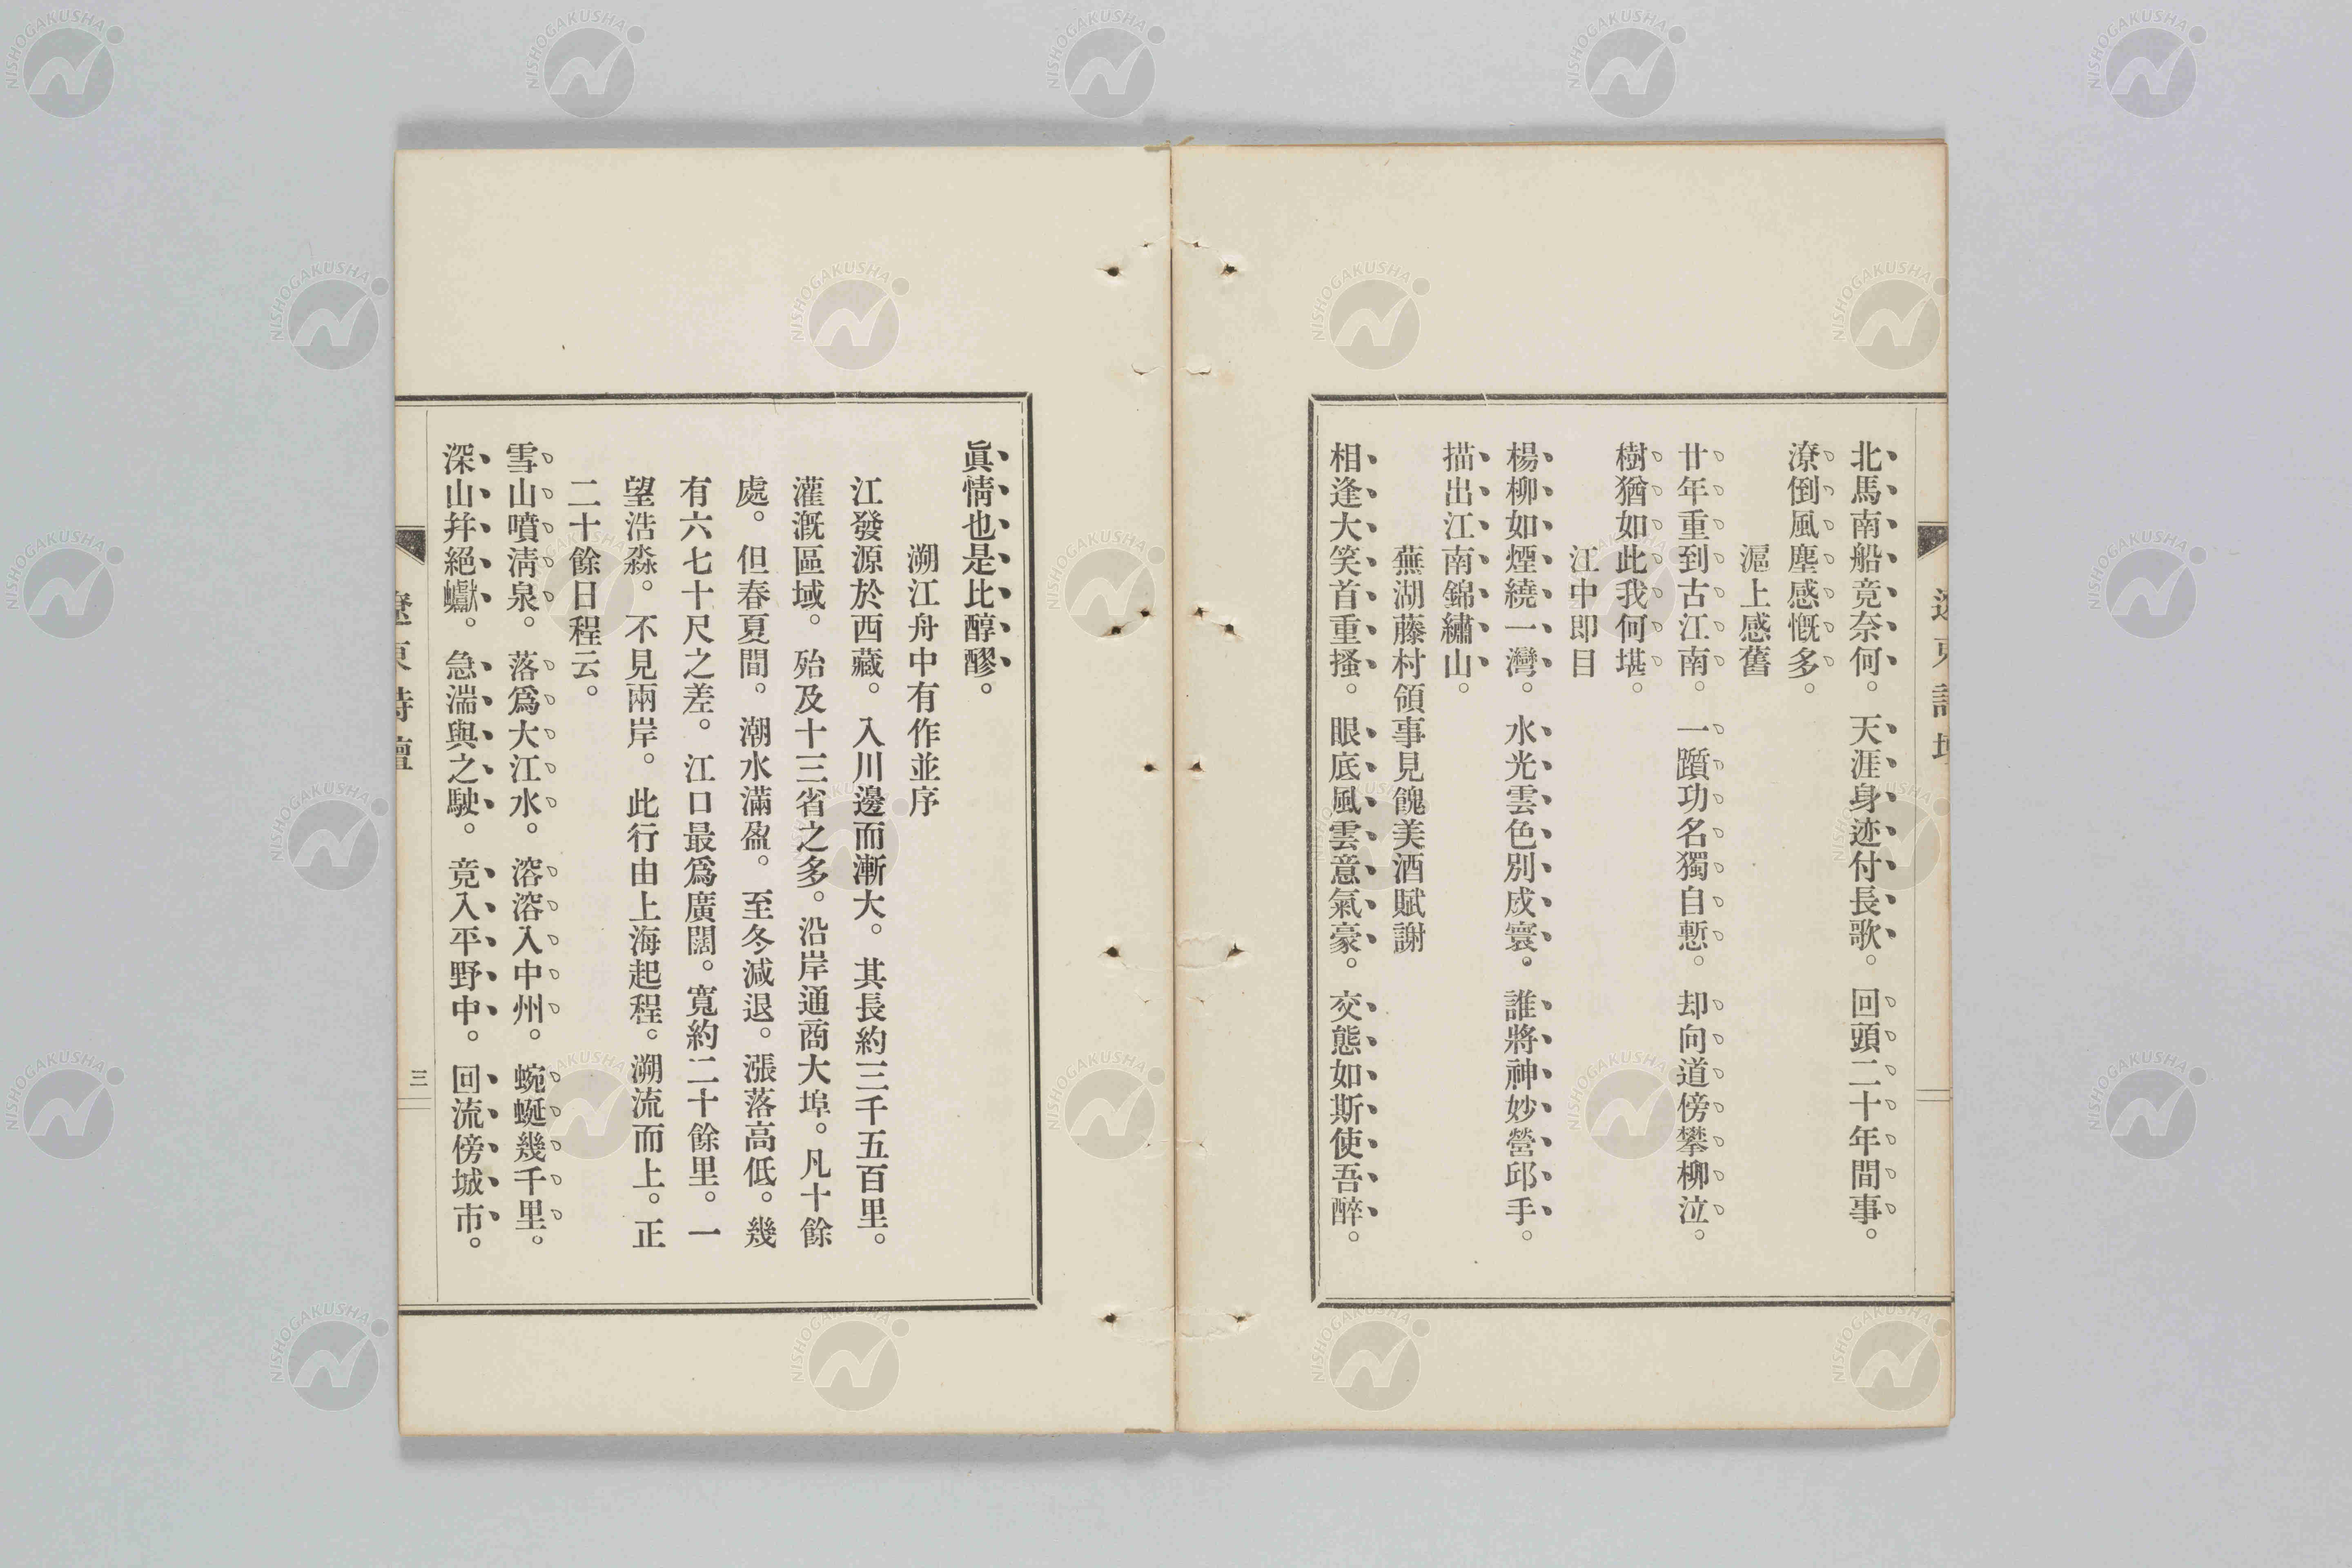 北馬南船竟奈何。天涯身迹付長歌。回頭二十年間事。
潦倒風塵感慨多。
滬上感舊
廿年重到古江南。一躓功名獨自慙。却向道傍攀柳泣。
樹猶如此我何堪。
江中即目
楊柳如煙繞一灣。水光雲色別成寰。誰將神妙營邱手。
描出江南錦繡山。
蕪湖藤村領事見餽美酒賦謝
相逢大笑首重搔。眼底風雲意氣豪。交態如斯使吾醉。
眞情也是比醇醪。
溯江舟中有作並序
江發源於西藏。入川邊而漸大。其長約三千五百里。
灌漑區域。殆及十三省之多。沿岸通商大埠。凡十餘
處。但春夏間。潮水滿盈。至冬減退。漲落高低。幾
有六七十尺之差。江口最爲廣闊。寬約二十餘里。一
望浩淼。不見兩岸。此行由上海起程。溯流而上。正
二十餘日程云。
雪山噴淸泉。落爲大江水。溶溶入中州。蜿蜒幾千里。
深山幷絕巘。急湍與之駛。竟入平野中。回流傍城市。
遼東詩壇
三
NISHOGAKUSHA